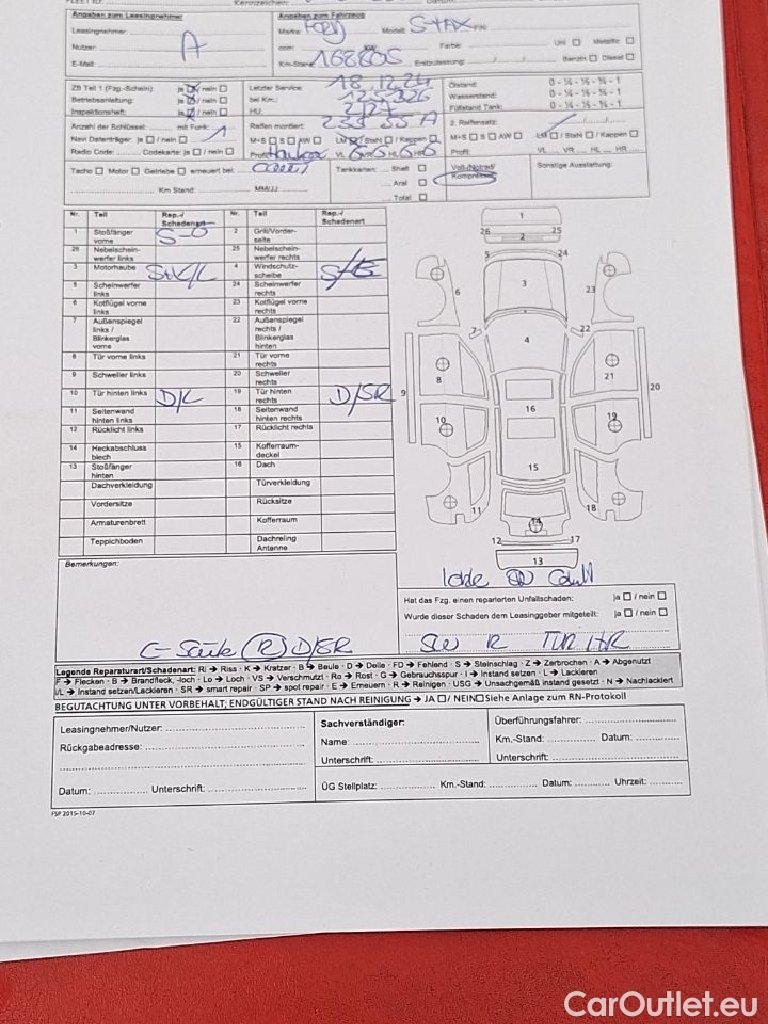 Angaben zum Leasingnehmer
Angaben zum Fahrzeug
Leasingnehmer:
Nutzer:
E-Mail:
A
Marke: FORD Modell: S-MAX
Farbe: Uni Metallic
168805
Erstzulassung: Benzin Diesel
ZB Teil 1 (Fzg.-Schein): ja / nein
Betriebsanleitung: ja / nein
Inspektionsheft: ja / nein
Anzahl der Schlüssel: mit Funk: 1
Navi Datenträger: ja / nein
Radio Code: Codekarte: ja / nein
Letzter Service: 18.12.24
bei Km.: 125326
HU: 2/27
Reifen montiert: 235 55
M+S S AW LM / StahI / Kappen
Profil: VL VR HL HR
Ölstand: 0 - ¼ - ½ - ¾ - 1
Wasserstand: 0 - ¼ - ½ - ¾ - 1
Füllstand Tank: 0 - ¼ - ½ - ¾ - 1
2. Reifensatz:
M+S S AW LM / Stahl / Kappen
Profil: VL VR HL HR
Tacho Motor Getriebe erneuert bei:
Km Stand: MM/JJ:
Tankkarten: Shell
Aral
Total
Voll-/Notrad/
Kompressor
Sonstige Ausstattung:
Nr. Teil Rep.-/ Schadenart Nr. Teil Rep.-/ Schadenart
1 Stoßfänger vorne 2 Grill/Vorderseite
26 Nebelscheinwerfer links 25 Nebelscheinwerfer rechts
3 Motorhaube 4 Windschutzscheibe
5 Scheinwerfer links 24 Scheinwerfer rechts
6 Kotflügel vorne links 23 Kotflügel vorne rechts
7 Außenspiegel links / Blinkerglas vorne 22 Außenspiegel rechts / Blinkerglas hinten
8 Tür vorne links 21 Tür vorne rechts
9 Schweller links 20 Schweller rechts
10 Tür hinten links D/L 19 Tür hinten rechts D/SR
11 Seitenwand hinten links 18 Seitenwand hinten rechts
12 Rücklicht links 17 Rücklicht rechts
14 Heckabschluss blech 15 Kofferraum-deckel
13 Stoßfänger hinten 16 Dach
Dachverkleidung Türverkleidung
Vordersitze Rücksitze
Armaturenbrett Kofferraum
Teppichboden Dachreling Antenne
1
26 2 25
5 24
6 3 23
7 4 22
8 21
9 20
10 16 19
15
11 14 18
12 17
13
Bemerkungen:
C-Säule (R) D/SR
Hat das Fzg. einen reparierten Unfallschaden: ja / nein
Wurde dieser Schaden dem Leasinggeber mitgeteilt: ja / nein
SW R TÜR HR
Legende Reparaturart/Schadenart: RI → Riss · K → Kratzer · B → Beule · D → Delle · FD → Fehlend · S → Steinschlag · Z → Zerbrochen · A → Abgenutzt
F → Flecken · B → Brandfleck, -loch · Lo → Loch · VS → Verschmutzt · Ro → Rost · G → Gebrauchsspur · I → Instand setzen · L → Lackieren
I/L → Instand setzen/Lackieren · SR → smart repair · SP → spot repair · E → Erneuern · R → Reinigen · USG → Unsachgemäß instand gesetzt · N → Nachlackiert
BEGUTACHTUNG UNTER VORBEHALT; ENDGÜLTIGER STAND NACH REINIGUNG → JA / NEIN Siehe Anlage zum RN-Protokoll
Leasingnehmer/Nutzer:
Rückgabeadresse:
Datum: Unterschrift:
Sachverständiger:
Name:
Unterschrift:
Überführungsfahrer:
Km.-Stand: Datum:
Unterschrift:
ÜG Stellplatz: Km.-Stand: Datum: Uhrzeit:
FSP 2015-10-07
CarOutlet.eu